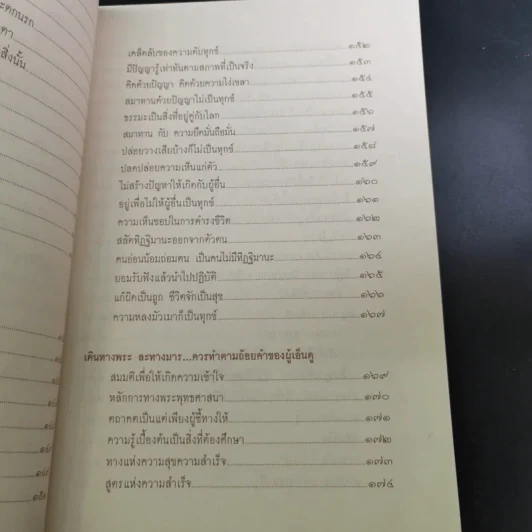 ะตกนรก
ดา
สิ่งนั้น
เคล็ดลับของความดับทุกข์ ๑๕๒
มีปัญญารู้เท่าทันตามสภาพที่เป็นจริง ๑๕๓
คิดด้วยปัญญา คิดด้วยความโง่เขลา ๑๕๔
สมาทานด้วยปัญญาไม่เป็นทุกข์ ๑๕๕
ธรรมะเป็นสิ่งที่อยู่คู่กับโลก ๑๕๖
สมาทาน กับ ความยึดมั่นถือมั่น ๑๕๗
ปล่อยวางเสียบ้างก็ไม่เป็นทุกข์ ๑๕๘
ปลดปล่อยความเห็นแก่ตัว ๑๕๙
ไม่สร้างปัญหาให้เกิดกับผู้อื่น ๑๖๐
อยู่เพื่อไม่ให้ผู้อื่นเป็นทุกข์ ๑๖๑
ความเห็นชอบในการดำรงชีวิต ๑๖๒
สลัดทิฏฐิมานะออกจากตัวตน ๑๖๓
คนอ่อนน้อมถ่อมตน เป็นคนไม่มีทิฏฐิมานะ ๑๖๔
ยอมรับฟังแล้วนำไปปฏิบัติ ๑๖๕
แก้ผิดเป็นถูก ชีวิตจักเป็นสุข ๑๖๖
ความหลงมัวเมาก็เป็นทุกข์ ๑๖๗
เดินทางพระ ละทางมาร...ควรทำตามถ้อยคำของผู้เอ็นดู
สมมติเพื่อให้เกิดความเข้าใจ ๑๖๙
หลักการทางพระพุทธศาสนา ๑๗๐
ตถาคตเป็นแต่เพียงผู้ชี้ทางให้ ๑๗๑
ความรู้เบื้องต้นเป็นสิ่งที่ต้องศึกษา ๑๗๒
ทางแห่งความสุขความสำเร็จ ๑๗๓
สูตรแห่งความสำเร็จ ๑๗๔